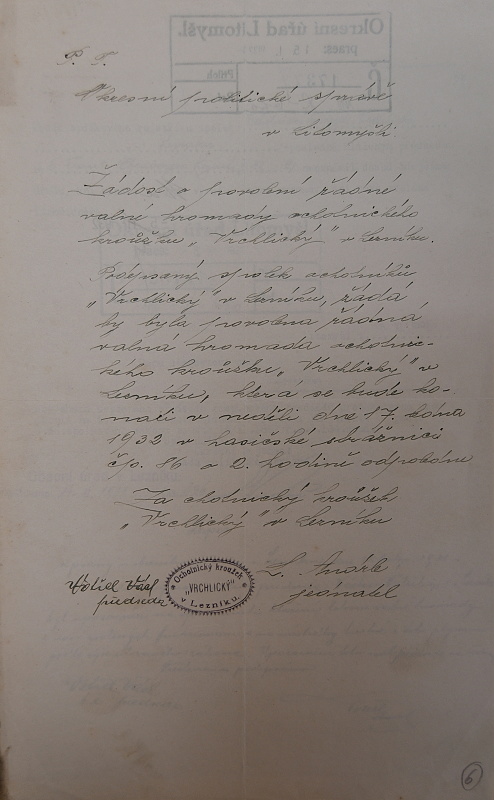 P. T.
Okresní politické správě
v Litomyšli.
Žádost o povolení řádné
valné hromady ochotnického
kroužku „Vrchlický" v Lezníku.
Podepsaný spolek ochotníků
„Vrchlický" v Lezníku, žádá
by byla povolena řádná
valná hromada ochotnic-
kého kroužku „Vrchlický" v
Lezníku, která se bude ko-
nati v neděli dne 17. ledna
1932 v hasičské strážnici
čp. 86 o 2. hodině odpoledne
Za ochotnický kroužek
„Vrchlický" v Lezníku
předseda
Ochotnický kroužek
„VRCHLICKÝ"
v Lezníku.
jednatel
6
Okresní úřad Litomyšl.